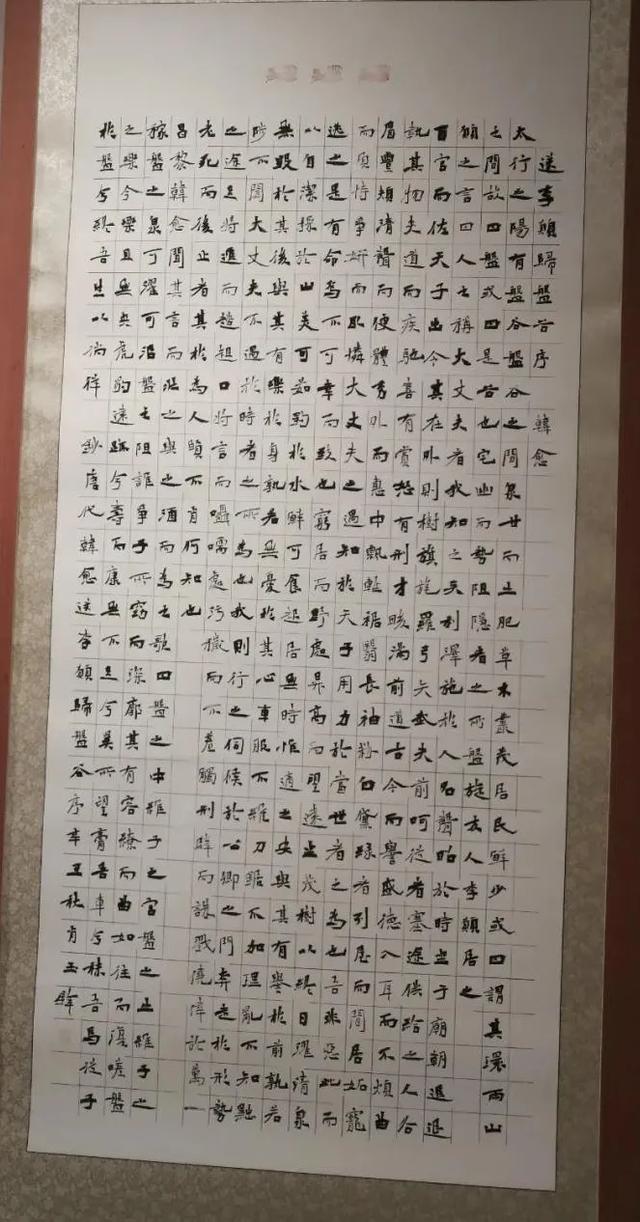 送李願歸盤谷序 韓愈
太行之陽有盤谷盤谷之間泉甘而土肥草木叢茂居民鮮少或曰謂其環兩山
之間故曰盤或曰是谷也宅幽而勢阻隱者之所盤旋友人李願居之
願之言曰人之稱大丈夫者我知之矣利澤施於人名聲昭於時坐于廟朝進退
百官而佐天子出令其在外則樹旗旄羅弓矢武夫前呵從者塞途供給之人各
執其物夾道而疾馳喜有賞怒有刑才畯滿前道古今而譽盛德入耳而不煩曲
眉豐頰清聲而便體秀外而惠中飄輕裾翳長袖粉白黛綠者列屋而閒居妬寵
而負恃爭妍而取憐大丈夫之遇知於天子用力於當世者之為也吾非惡此而
逃之是有命焉不可幸而致也窮居而野處昇高而望遠坐茂樹以終日濯清泉
以自潔採於山美可茹釣於水鮮可食起居無時惟適之安與其有譽於前孰若
無毀於其後與其有樂於身孰若無憂於其心車服不維刀鋸不加理亂不知黜
陟不聞大丈夫不遇於時者之所為也我則行之伺候於公卿之門奔走於形勢
之途足將進而趑趄口將言而囁嚅處汚穢而不羞觸刑辟而誅戮僥倖於萬一
老死而後止者其於為人賢不肖何知也
昌黎韓愈聞其言而壯之與之酒而為之歌曰盤之中維子之宮盤之土維子之
稼盤之泉可濯可沿盤之阻誰爭子所窈而深廓其有容繚而曲如往而復嗟盤
之樂兮樂且無央虎豹遠蹤兮壽而康無不足兮奚所望膏吾車兮秣吾馬從子
於盤兮終吾生以徜徉 鈔唐代韓愈送李願歸盤谷序辛丑秋肖玉